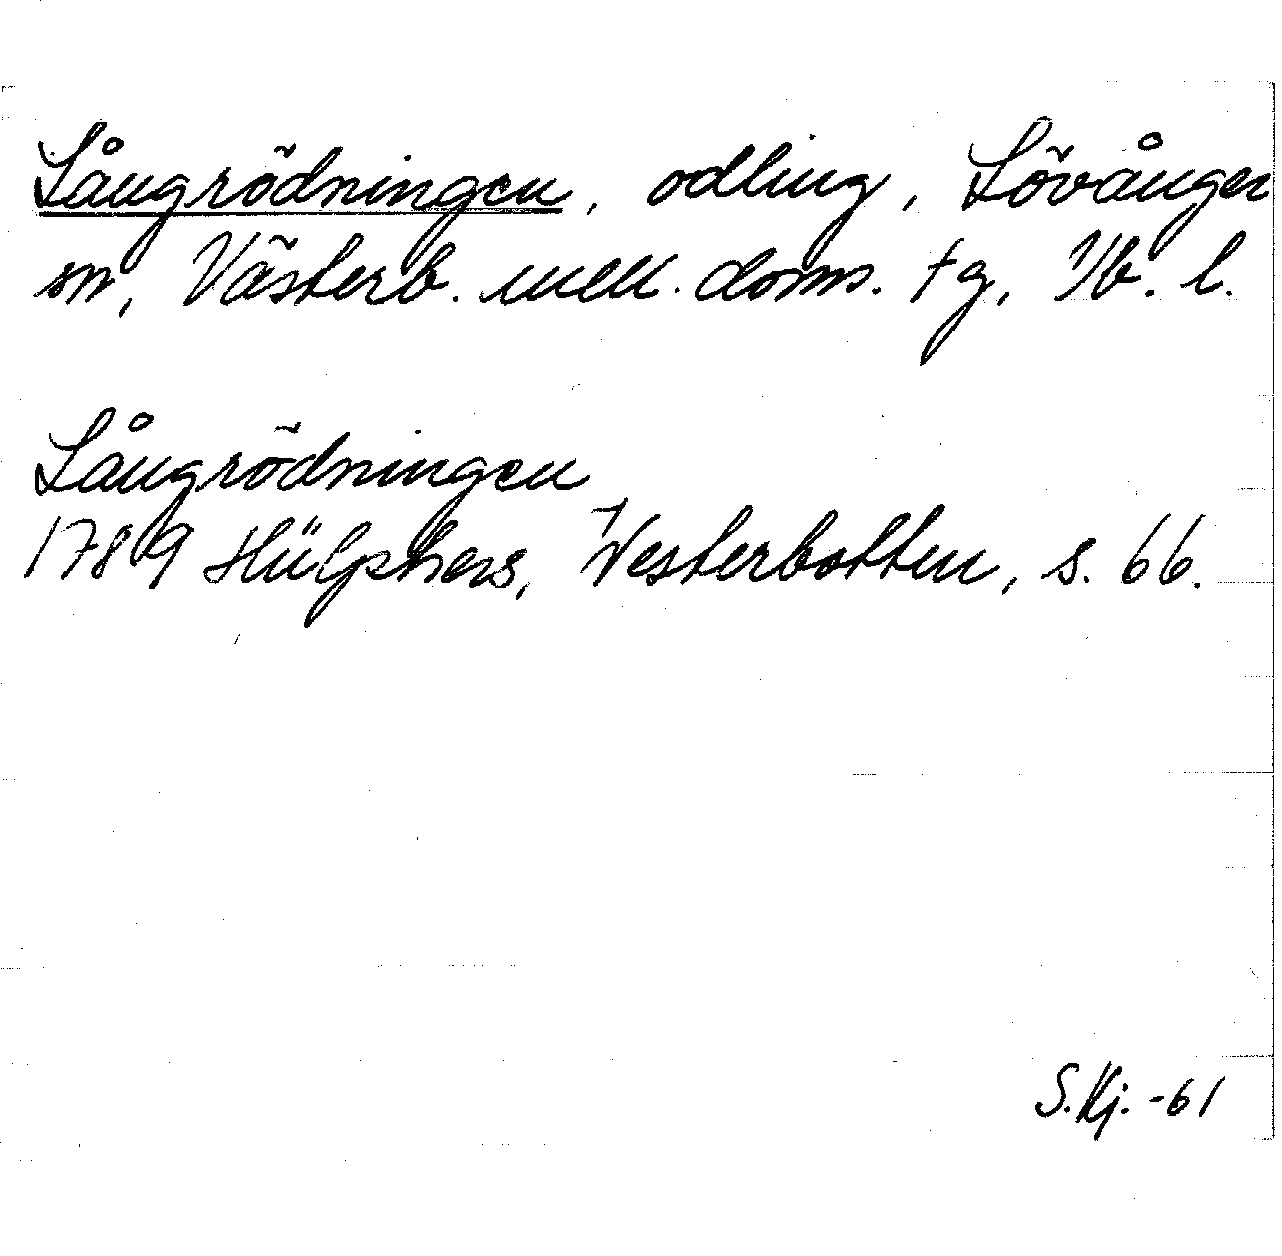 Långrödningen, odling, Lövånger
sn, Västerb. mell. doms. tg, Vb. l.
Långrödningen
1789 Hülphers, Westerbotten, s. 66.
S. Kj. -61